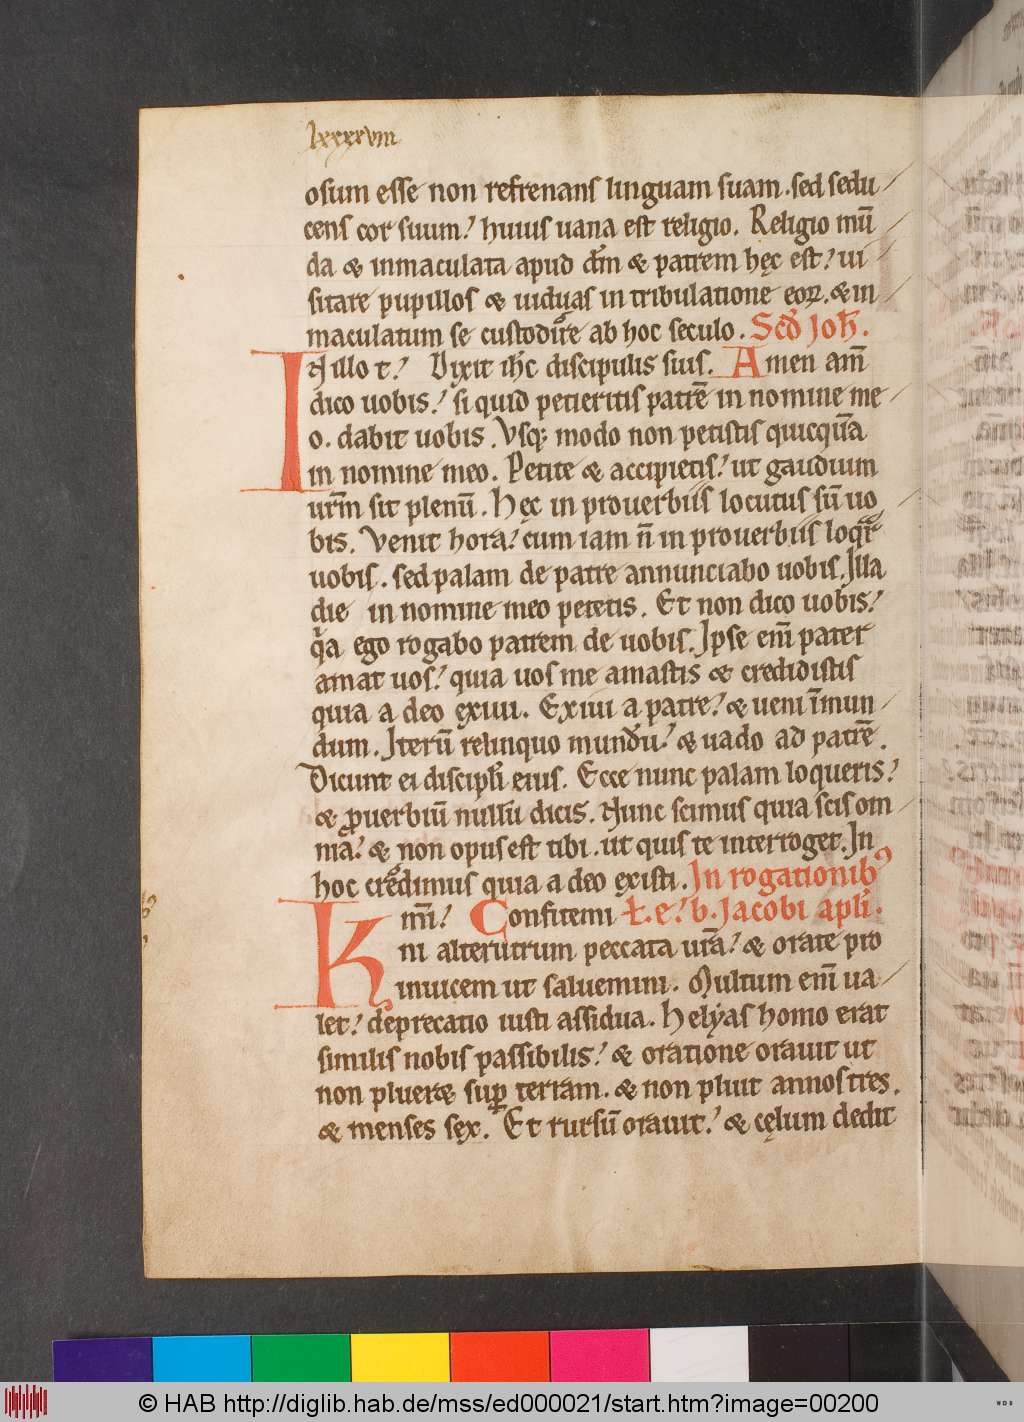 lxxxxviii
osum esse non refrenans linguam suam. sed sedu
cens cor suum! huius uana est religio. Religio mū
da & inmaculata apud dm̄ & patrem hęc est! ui
sitare pupillos & uiduas in tribulatione eoꝝ. & in
maculatum se custodire ab hoc seculo. Scd̄ Joh̄.
IN illo t! Dixit ih̄c discipulis suis. Amen am̄
dico uobis! si quid petieritis patrē in nomine me
o. dabit uobis. Vsq; modo non petistis quicquā
in nomine meo. Petite & accipietis! ut gaudium
ur̄m sit plenū. Hęc in prouerbiis locutus sū uo
bis. Venit hora! cum iam n̄ in prouerbiis loqr̄
uobis. sed palam de patre annunciabo uobis. Illa
die in nomine meo petetis. Et non dico uobis!
qͣa ego rogabo patrem de uobis. Ipse eni̅ pater
amat uos! quia uos me amastis & credidistis
quia a deo exiui. Exiui a patre! & ueni ī mun
dum. Iterū relinquo mundū! & uado ad patrē.
Dicunt ei discipli̅ eius. Ecce nunc palam loqueris!
& ꝓuerbiū nullū dicis. Nunc scimus quia scis om
nia! & non opus est tibi. ut quis te interroget. In
hoc credimus quia a deo existi. In rogationibꝰ
Km̄i! Confitemi ł. e! b. Jacobi apli̅.
ni alterutrum peccata urā! & orate pro
inuicem ut saluemini. Multum eni̅ ua
let! deprecatio iusti assidua. Helyas homo erat
similis nobis passibilis! & oratione orauit ut
non pluer& suꝑ terram. & non pluit annos tres.
& menses sex. Et rursū orauit! & cęlum dedit
© HAB http://diglib.hab.de/mss/ed000021/start.htm?image=00200